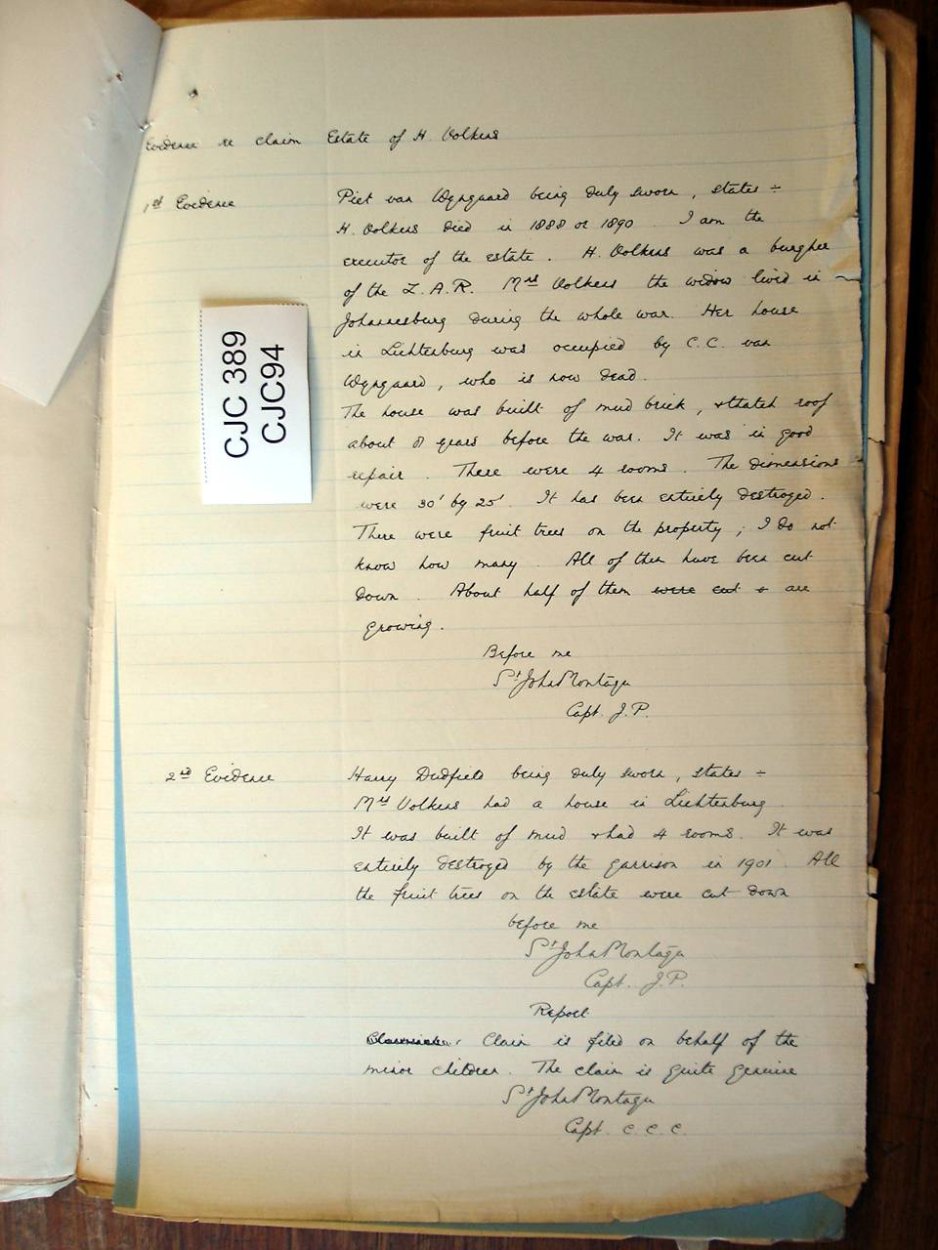 Evidence re claim Estate of H. Volkers
1st Evidence Piet van Wyngaard being duly sworn, states ÷
H. Volkers died in 1888 or 1890 I am the
executor of the estate. H. Volkers was a burgher
of the Z.A.R. Mrs Volkers the widow lived in
Johannesburg during the whole war. Her house
in Lichtenburg was occupied by C.C. van
Wyngaard, who is now dead.
The house was built of mud brick, & thatch roof
about 8 years before the war. It was in good
repair. There were 4 rooms. The dimensions
were 30' by 25'. It has been entirely destroyed.
There were fruit trees on the property; I do not
know how many. All of them have been cut
down. About half of them were cut & are
growing.
Before me
St John Montagu
Capt. J.P.
CJC 389
CJC94
2nd Evidence Harry Dudfield being duly sworn, states ÷
Mrs Volkers had a house in Lichtenburg
It was built of mud & had 4 rooms. It was
entirely destroyed by the garrison in 1901. All
the fruit trees on the estate were cut down
before me
St John Montagu
Capt. J.P.
Report
Claim is filed on behalf of the
minor children. The claim is quite genuine
St John Montagu
Capt. C.C.C.